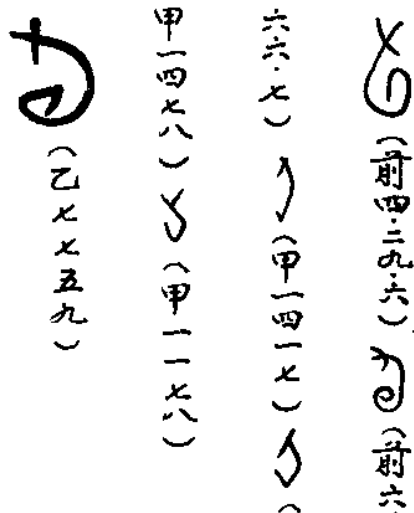 （前四·二九·六）（前六
六六·七）（甲一四一七）（
甲一四七八）（甲一一七八）
（乙七七五九）